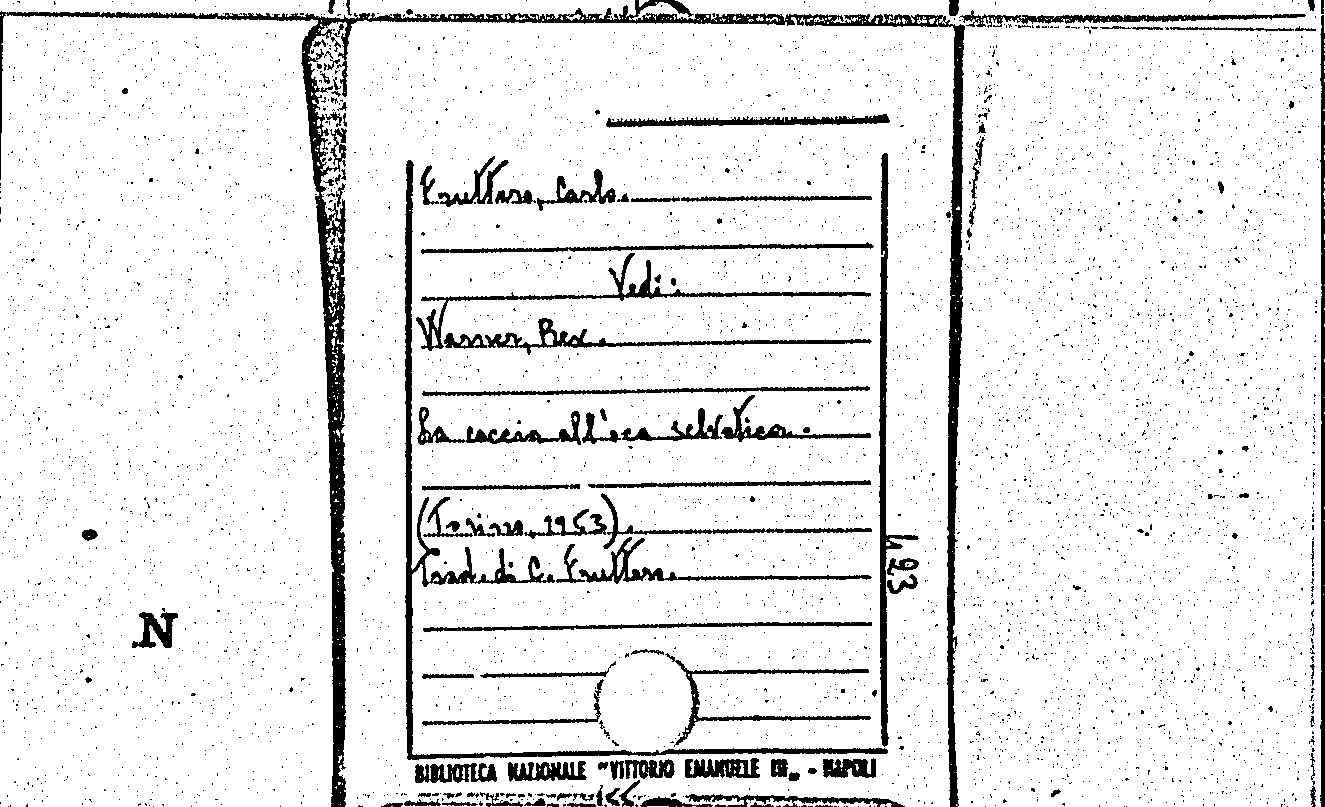 Fruttero, Carlo.
Vedi:
Warner, Rex.
La caccia all'oca selvatica.
(Torino, 1953).
Trad. di C. Fruttero.
493
N
BIBLIOTECA NAZIONALE "VITTORIO EMANUELE III„ - NAPOLI